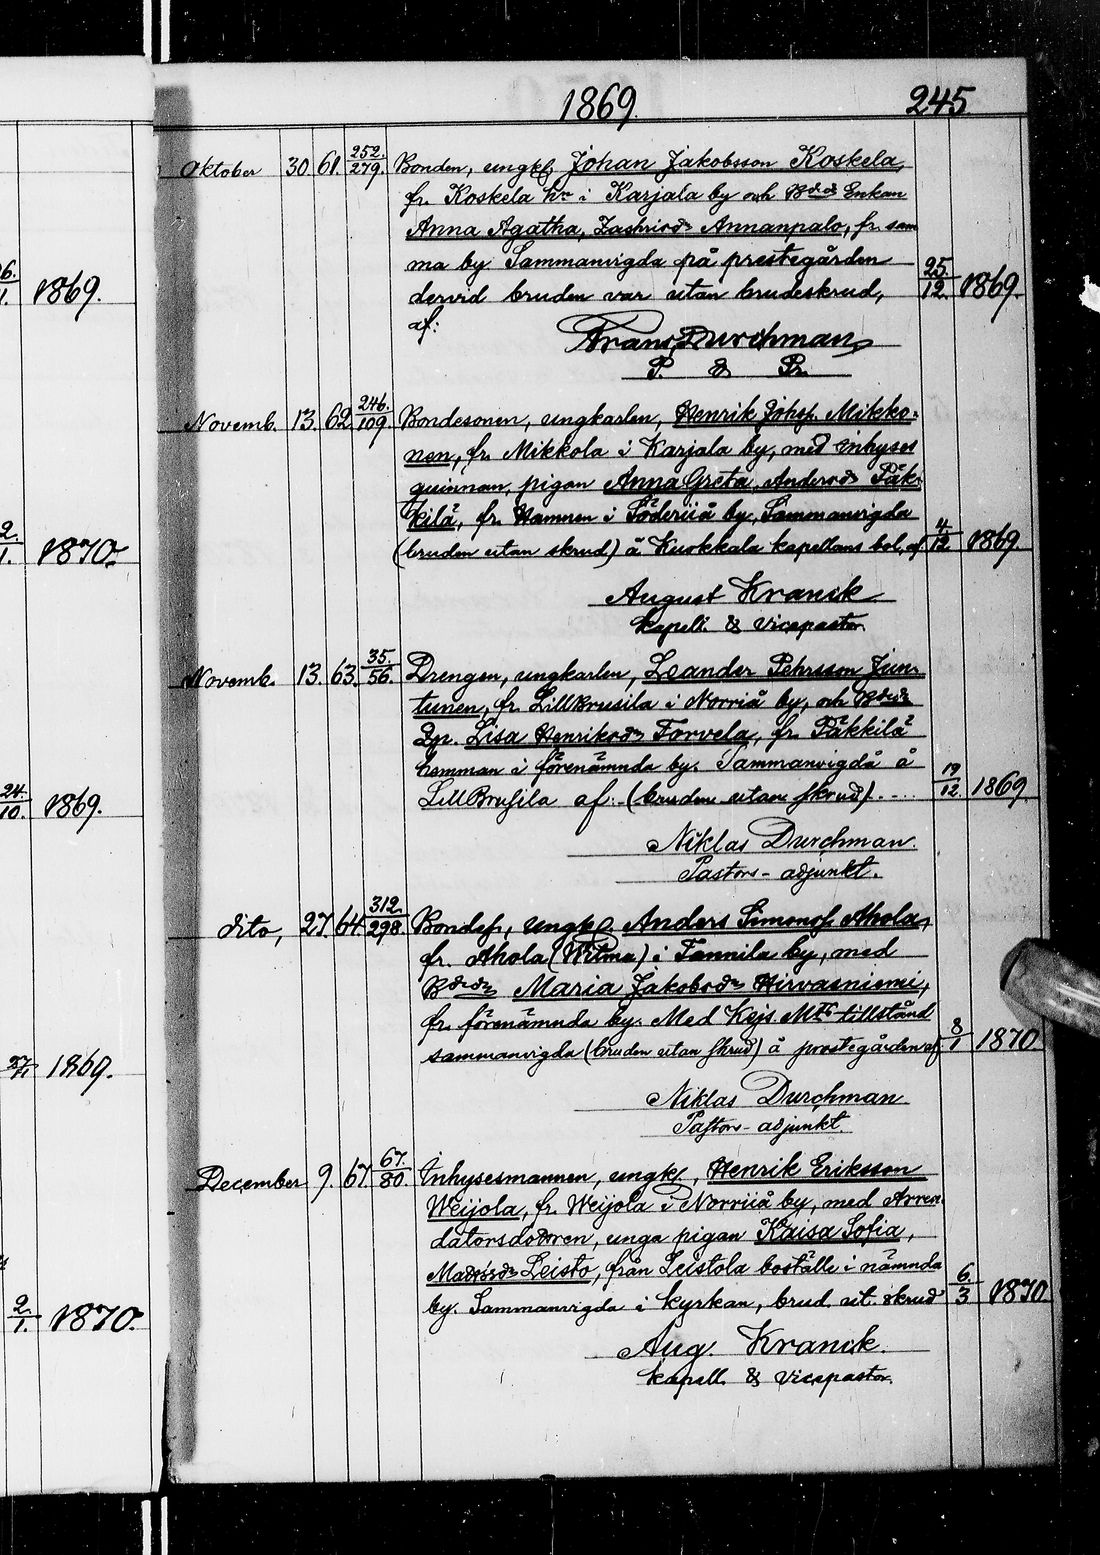 1869. 245.
Oktober 30. 61. 252./279. Bonden, ungk. Johan Jakobsson Koskela,
fr. Koskela hn i Karjala by och Bdedr Enkan
Anna Agatha, Annanpalo, fr. sam
ma by Sammanvigda på prestegården
dervid bruden var utan brudeskrud, 25./12. 1869.
af:
Frans Durchman
P. & Pr.
Novemb. 13. 62 246./109 Bondesonen, ungkarlen, Henrik Johsp. Mikko-
nen, fr. Mikkola i Karjala by, med inhyses
qvinnan, pigan Anna Greta, Andersdr Päk-
kilä, fr. Hamnen i Söderiiå by, Sammanvigda
(bruden utan skrud) å Kuokkala kapellans bol, af 4./12 1869.
August Kranck
kapell. & Vicepastor.
Novemb. 13. 63. 35./56. Drengen, ungkarlen, Leander Pehrsson Jun-
tunen, fr. LillBrusila i Norriiå by, och Bdedr
Dp. Lisa Henriksdr Torvela, fr. Päkkilä
hemman i förenämnda by. Sammanvigda å
LillBrusila af: (bruden utan skrud). 19/12. 1869.
Niklas Durchman.
Pastors-adjunkt.
dito, 27 64 312./298. Bondes., ungk. Anders Simons. Ahola,
fr. Ahola (Witma) i Tannila by, med
Bdedr Maria Jakobsdr Hirvasniemi,
fr. förenämnda by. Med Kejs. Mts tillstånd
sammanvigda (bruden utan skrud) å prostegården af 8/1 1870
Niklas Durchman
Pastors-adjunkt.
December 9. 67. 67./80. Inhysesmannen, ungk., Henrik Eriksson
Weijola, fr. Weijola i Norriiå by, med Arren-
datorsdottren, unga pigan Kaisa Sofia,
Leisto, från Leistola boställe i nämnda
by. Sammanvigda i kyrkan, brud. ut. skrud 6./3 1870
Aug. Kranck.
kapell. & Vicepastor.
1869.
1870.
24./10. 1869.
27/11 1869.
2./1. 1870.